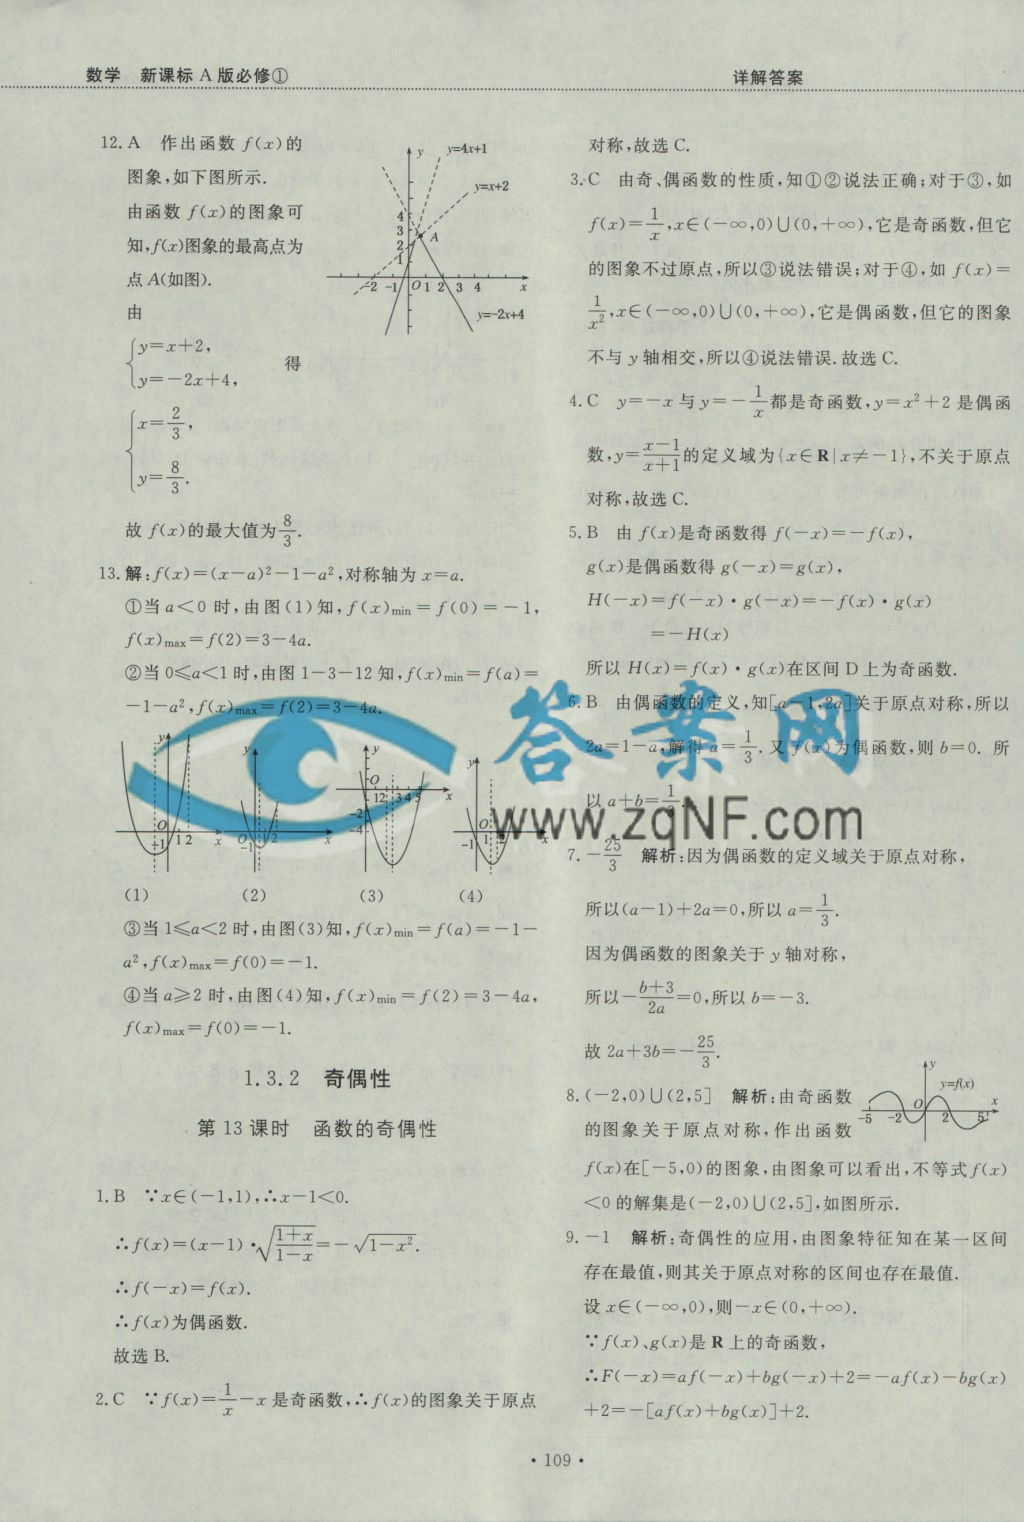 数学 新课标A版必修①
详解答案
12. A 作出函数 f(x)的
图象,如下图所示.
由函数 f(x)的图象可
知,f(x)图象的最高点为
点 A(如图).
由
{y=x+2,
y=-2x+4, 得
{x=2/3,
y=8/3.
故 f(x)的最大值为8/3.
y
y=4x+1
y=x+2
4
3
2
1
A
-2 -1 O 1 2 3 4 x
y=-2x+4
13. 解:f(x)=(x-a)²-1-a²,对称轴为 x=a.
①当 a<0 时,由图(1)知,f(x)min=f(0)=-1,
f(x)max=f(2)=3-4a.
②当 0≤a<1 时,由图 1-3-12 知,f(x)min=f(a)=
-1-a²,f(x)max=f(2)=3-4a.
(1) (2) (3) (4)
③当 1≤a<2 时,由图(3)知,f(x)min=f(a)=-1-
a²,f(x)max=f(0)=-1.
④当 a≥2 时,由图(4)知,f(x)min=f(2)=3-4a,
f(x)max=f(0)=-1.
1.3.2 奇偶性
第 13 课时 函数的奇偶性
1. B ∵x∈(-1,1),∴x-1<0.
∴f(x)=(x-1)·√((1+x)/(1-x))=-√(1-x²).
∴f(-x)=f(x).
∴f(x)为偶函数.
故选 B.
2. C ∵f(x)=1/x-x 是奇函数,∴f(x)的图象关于原点
对称,故选 C.
3. C 由奇、偶函数的性质,知①②说法正确;对于③,如
f(x)=1/x,x∈(-∞,0)∪(0,+∞),它是奇函数,但它
的图象不过原点,所以③说法错误;对于④,如 f(x)=
1/x²,x∈(-∞,0)∪(0,+∞),它是偶函数,但它的图象
不与 y 轴相交,所以④说法错误.故选 C.
4. C y=-x 与 y=-1/x都是奇函数,y=x²+2 是偶函
数,y=(x-1)/(x+1)的定义域为{x∈R|x≠-1},不关于原点
对称,故选 C.
5. B 由 f(x)是奇函数得 f(-x)=-f(x),
g(x)是偶函数得 g(-x)=g(x),
H(-x)=f(-x)·g(-x)=-f(x)·g(x)
=-H(x)
所以 H(x)=f(x)·g(x)在区间 D上为奇函数.
6. B 由偶函数的定义,知[a-1,2a]关于原点对称,所以
2a=1-a,解得 a=1/3.又 f(x)为偶函数,则 b=0. 所
以 a+b=1/3.
答案网
www.zqNF.com
7. -25/3 解析:因为偶函数的定义域关于原点对称,
所以(a-1)+2a=0,所以 a=1/3.
因为偶函数的图象关于 y 轴对称,
所以-(b+3)/2a=0,所以 b=-3.
故 2a+3b=-25/3.
8. (-2,0)∪(2,5] 解析:由奇函数
的图象关于原点对称,作出函数
f(x)在[-5,0)的图象,由图象可以看出,不等式 f(x)
<0 的解集是(-2,0)∪(2,5],如图所示.
y
y=f(x)
-5 -2 O 2 5 x
9. -1 解析:奇偶性的应用,由图象特征知在某一区间
存在最值,则其关于原点对称的区间也存在最值.
设 x∈(-∞,0),则-x∈(0,+∞).
∵f(x)、g(x)是 R 上的奇函数,
∴F(-x)=af(-x)+bg(-x)+2=-af(x)-bg(x)
+2=-[af(x)+bg(x)]+2.
· 109 ·